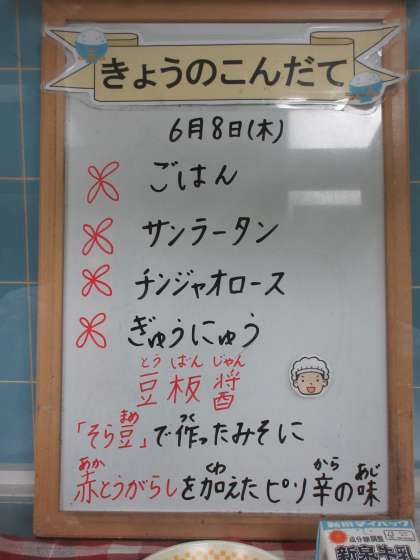 きょうのこんだて
6月8日(木)
ごはん
サンラータン
チンジャオロース
ぎゅうにゅう
とう ばん じゃん
豆板醤
まめ つく
「そら豆」で作ったみそに
あか くわ から あじ
赤とうがらしを加えたピリ辛の味
成分無調整